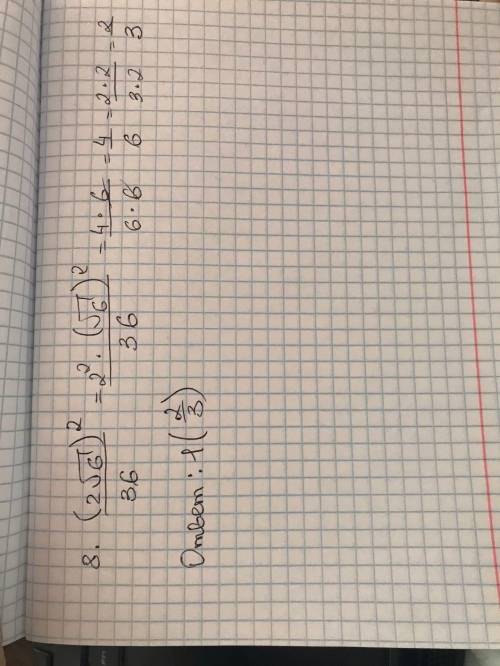 8. (2√6)²/36 = 2²·(√6)²/36 = 4·6/6·6 = 4/6 = 2·2/3·2 = 2/3
Ответ: 1 (2/3)